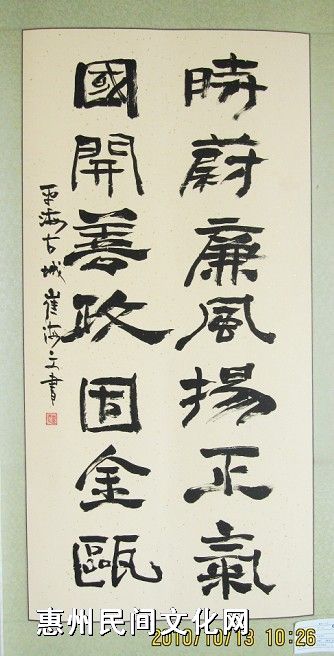 時蔚廉風揚正氣
國開善政固金甌
平海古城崔海書
惠州民间文化网
2010/10/13 10:26